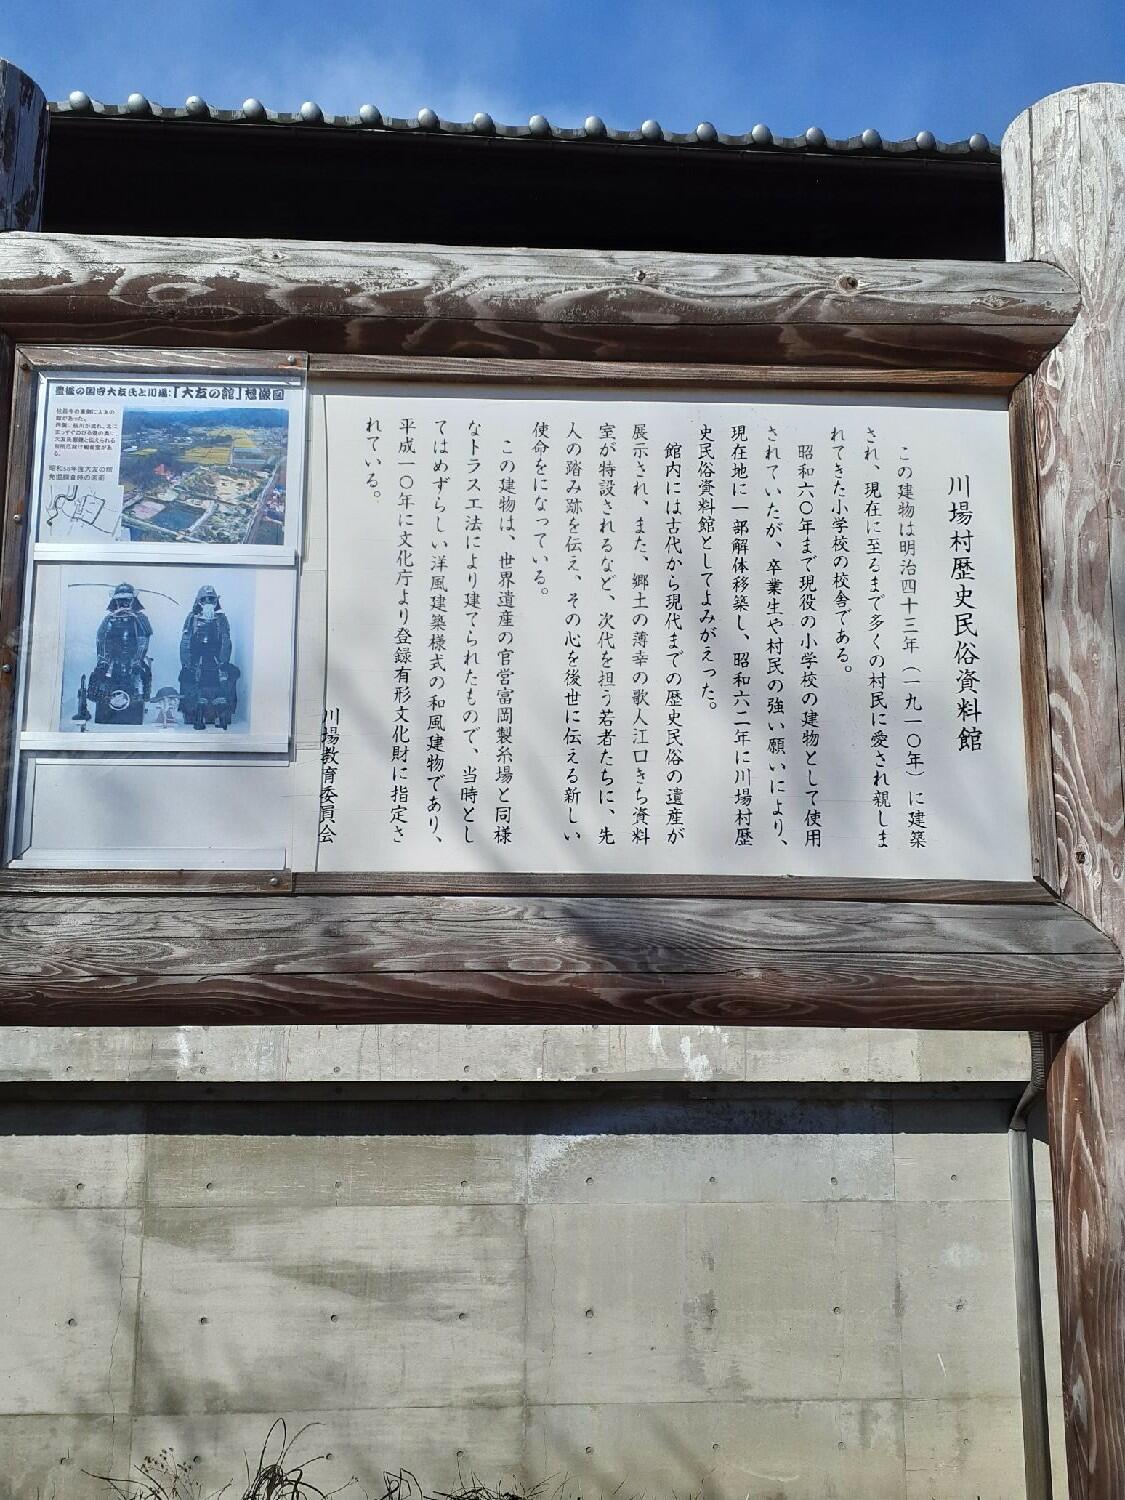 川場村歴史民俗資料館
この建物は明治四十三年（一九一〇年）に建築
され、現在に至るまで多くの村民に愛され親しま
れてきた小学校の校舎である。
昭和六〇年まで現役の小学校の建物として使用
されていたが、卒業生や村民の強い願いにより、
現在地に一部解体移築し、昭和六二年に川場村歴
史民俗資料館としてよみがえった。
館内には古代から現代までの歴史民俗の遺産が
展示され、また、郷土の薄幸の歌人江口きち資料
室が特設されるなど、次代を担う若者たちに、先
人の踏み跡を伝え、その心を後世に伝える新しい
使命をになっている。
この建物は、世界遺産の官営富岡製糸場と同様
なトラス工法により建てられたもので、当時とし
てはめずらしい洋風建築様式の和風建物であり、
平成一〇年に文化庁より登録有形文化財に指定さ
れている。
川場教育委員会
豊後の国守大友氏と川場:「大友の館」想像図
昭和58年度大友の館
発掘調査時の実影